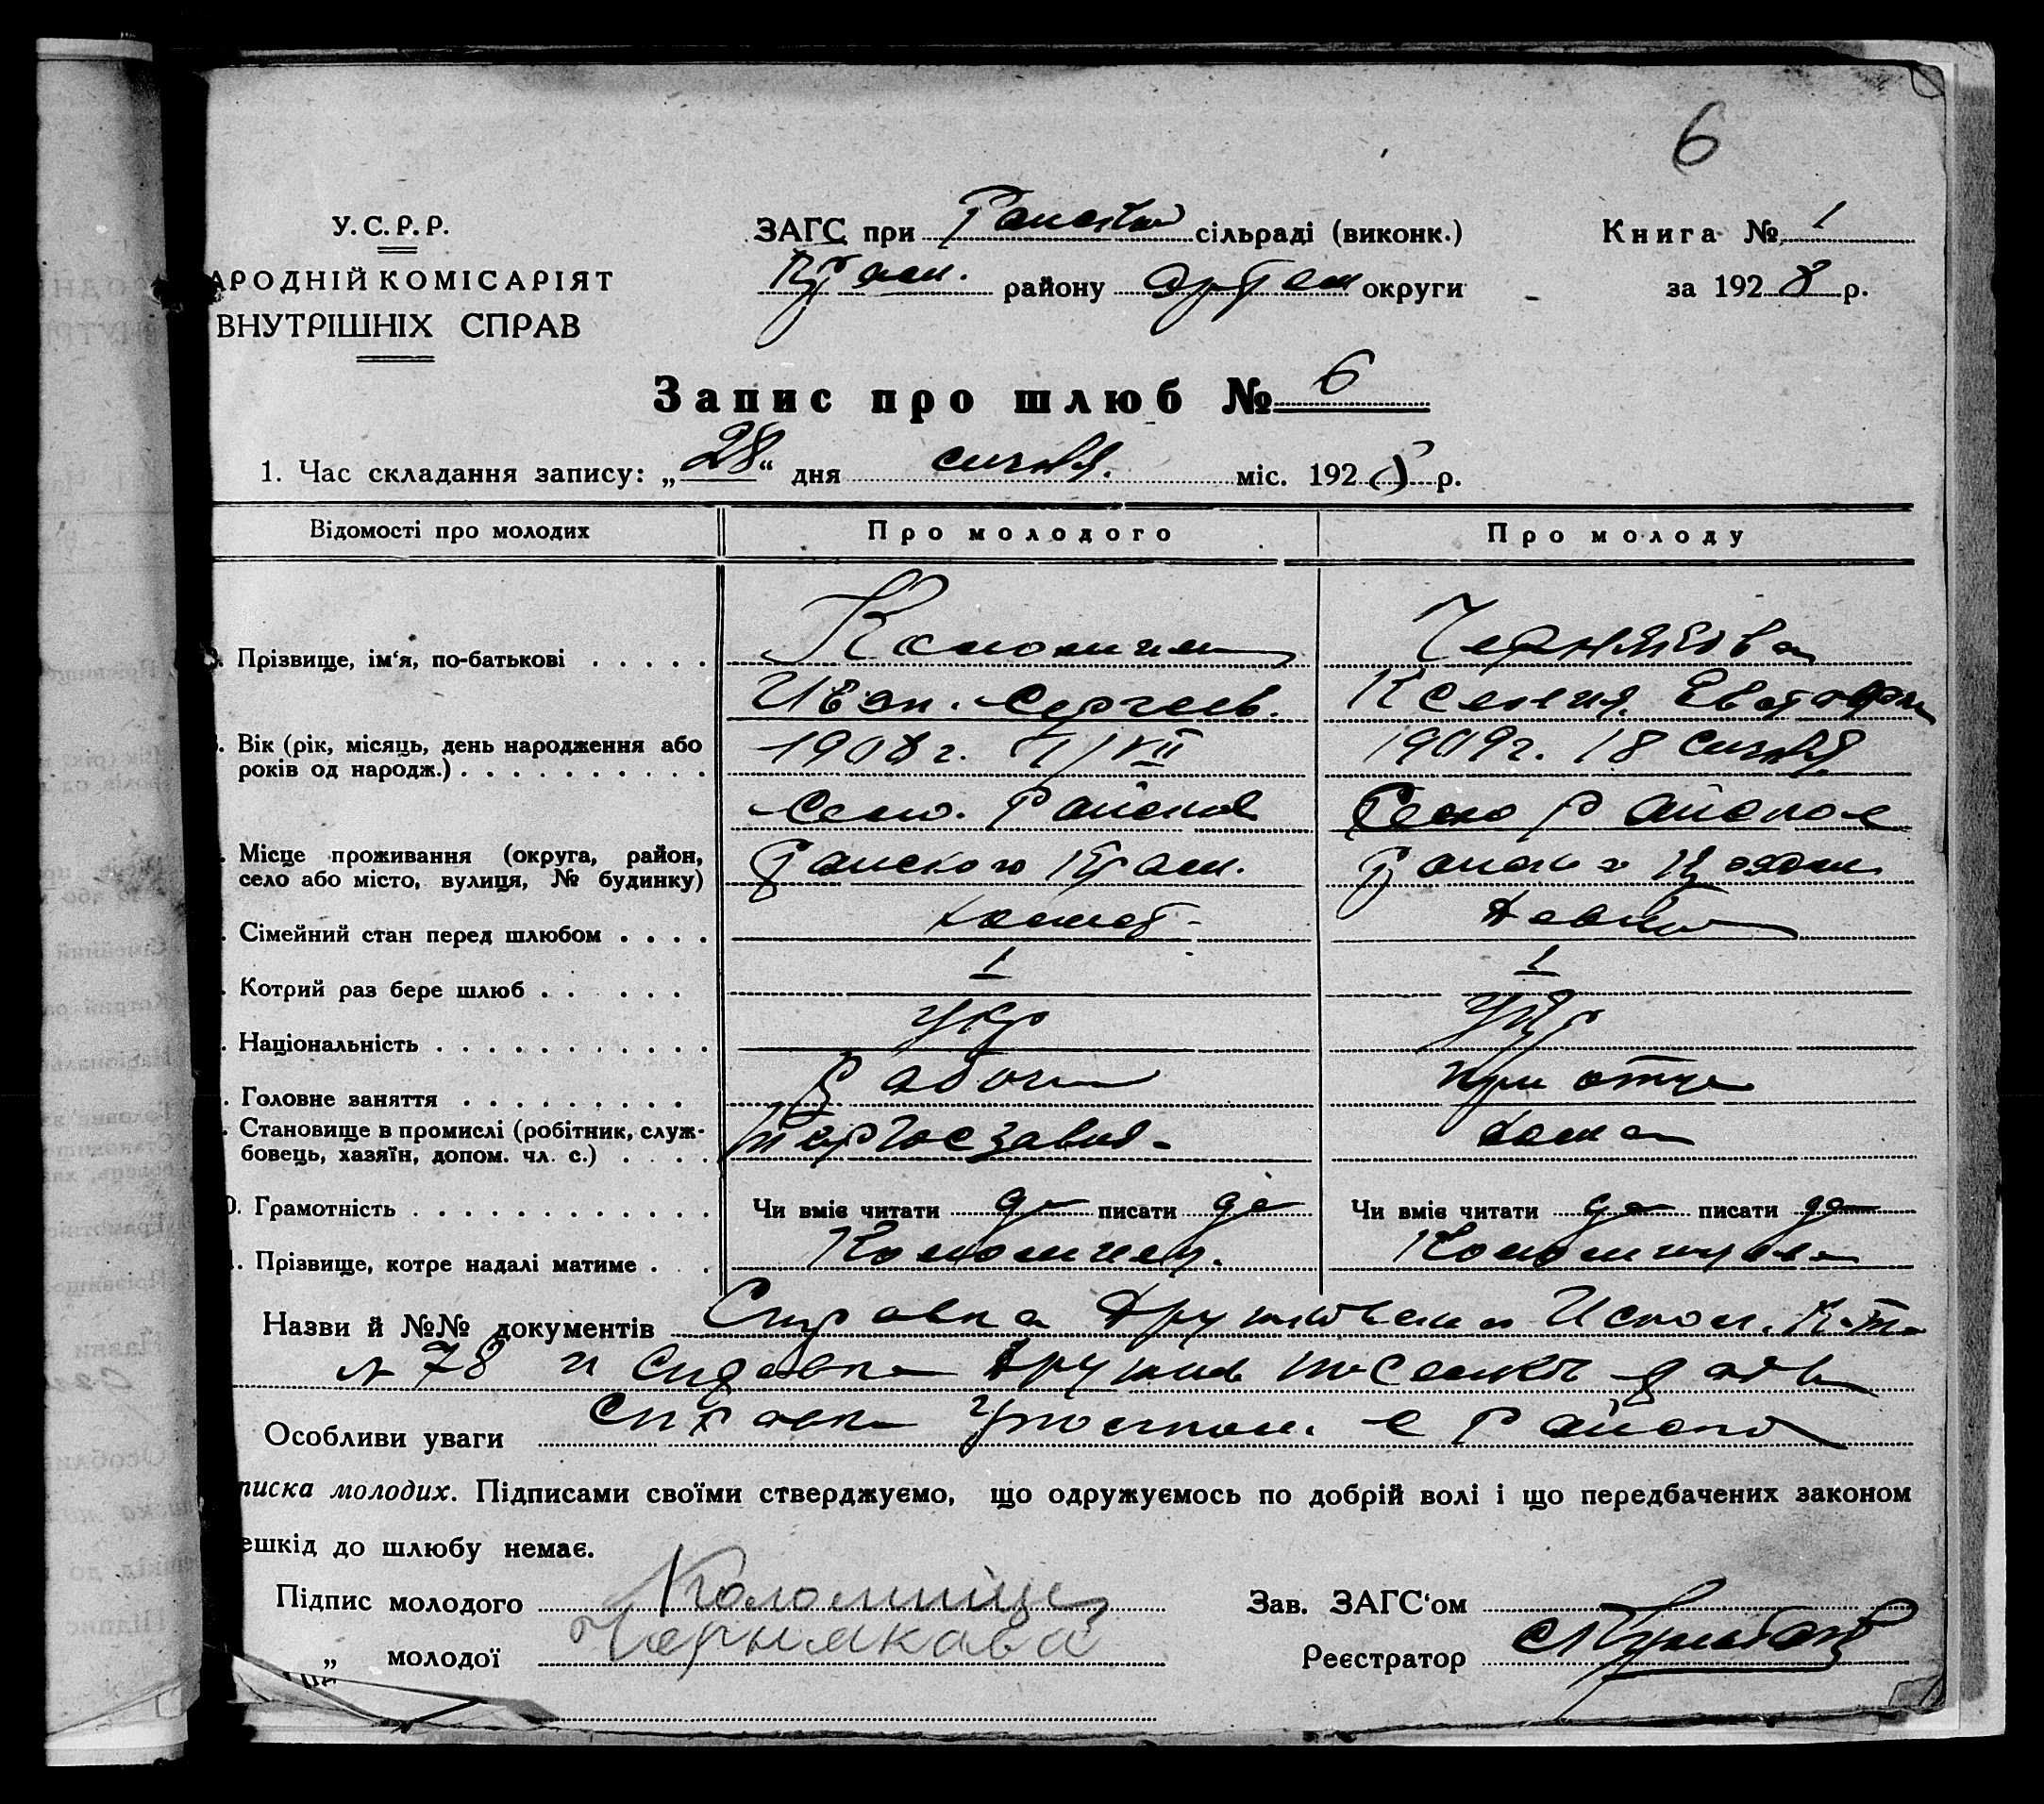 6
У.С.Р.Р.
АРОДНІЙ КОМІСАРІЯТ
ВНУТРІШНІХ СПРАВ
ЗАГС при сільраді (виконк.)
Крам. району Артем округи
Книга № 1
за 1928 р.
Запис про шлюб № 6
1. Час складання запису: „28“ дня січня. міс. 192 р.
Відомості про молодих
Про молодого
Про молоду
Прізвище, ім‘я, по-батькові
Коломиец
Чернякова
Иван. Сергеев.
Ксения
Вік (рік, місяць, день народження або
років од народж.)
1908 г. VII
1909 г. 18 січня
Село. Райское
Село Райское
Місце проживання (округа, район,
село або місто, вулиця, № будинку)
Райского Крам.
Сімейний стан перед шлюбом
холост
девица
Котрий раз бере шлюб
1
1
Національність
Укр
Укр
Головне заняття
Рабочи
при отце
Становище в промислі (робітник, служ-
бовець, хазяїн, допом. чл. с.)
дома
. Грамотність
Чи вміє читати да писати да
Чи вміє читати да писати да
. Прізвище, котре надалі матиме
Коломиец.
Коломицева
Назви й №№ документів Справка Дружковского Исполн. К-та
№ 78 и Справка Дружков
Особливи уваги Справка с Райско
писка молодих. Підписами своїми стверджуємо, що одружуємось по добрій волі і що передбачених законом
ешкід до шлюбу немає.
Підпис молодого Коломиіец
„ молодої Чернякава
Зав. ЗАГС‘ом
Реєстратор